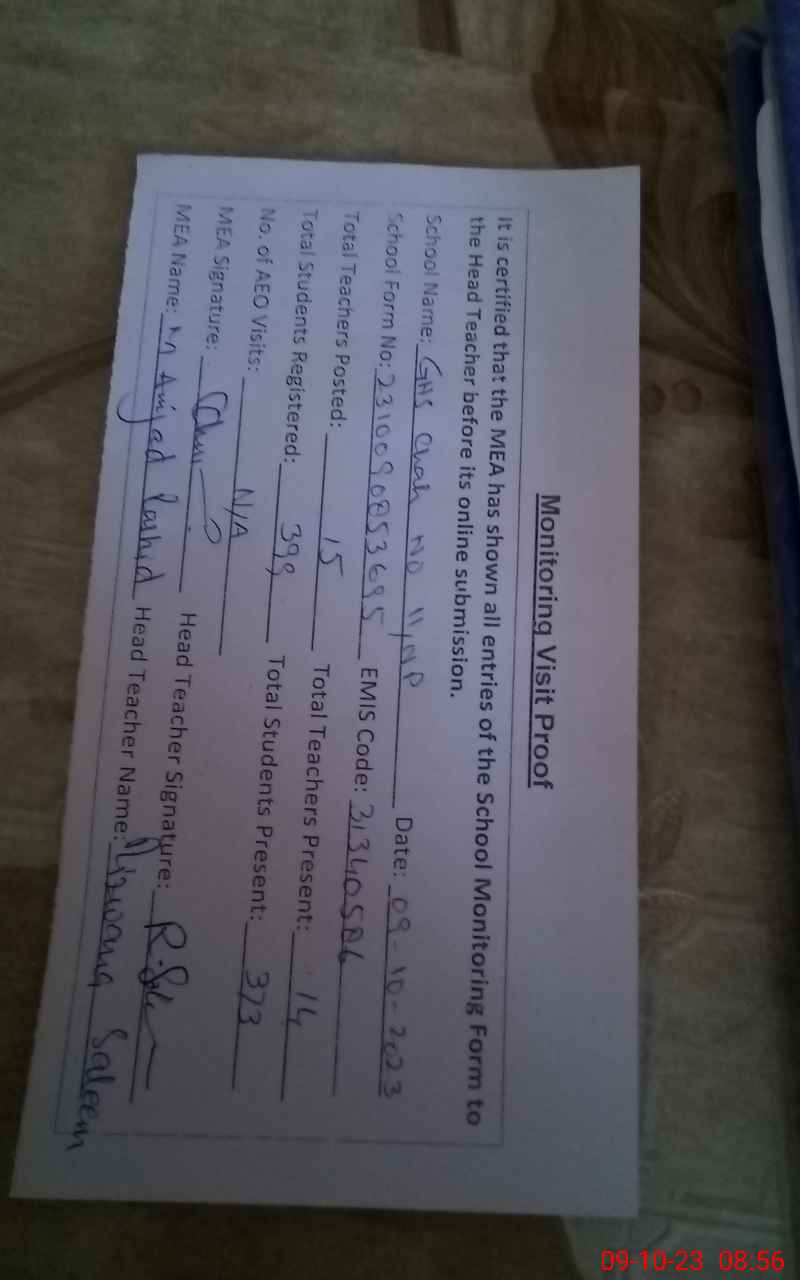 Monitoring Visit Proof
It is certified that the MEA has shown all entries of the School Monitoring Form to
the Head Teacher before its online submission.
School Name: GHS Chah No 11/NP Date: 09-10-2023
School Form No: 2310090853695 EMIS Code:
Total Teachers Posted: 15 Total Teachers Present: 14
Total Students Registered: 399 Total Students Present: 373
No. of AEO Visits: N/A
MEA Signature: Head Teacher Signature:
MEA Name: M Amjad Rashid Head Teacher Name: Rizwana Saleem
09-10-23 08:56